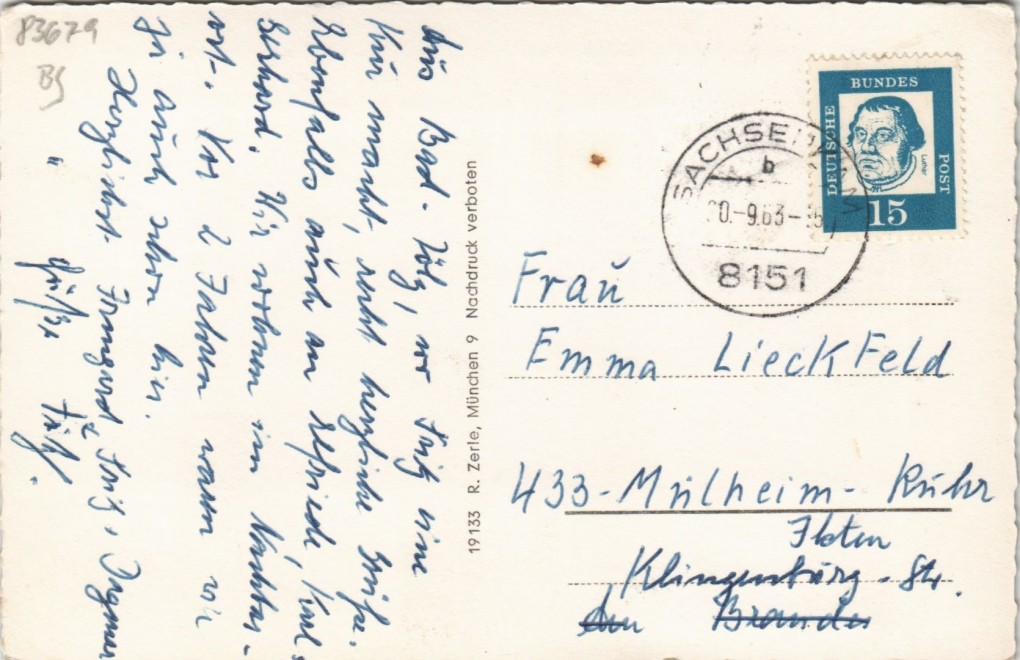 83679
BS
Aus Bad-Tölz, wo Fritz eine
Kur macht, recht herzliche Grüße.
Ebenfalls auch an Elfriede, Karl,
Gerhard. Wir wohnen im Nachbar-
ort. Vor 2 Jahren waren wir
ja auch schon hier.
Herzlichst Irmgard, Fritz, Ingmar
" Grüße Fritz.
19133 R. Zerle, München 9 Nachdruck verboten
DEUTSCHE BUNDES POST
Luther
15
SACHSENKAM
b
0.-9.63-
8151
Frau
Emma Lieckfeld
433-Mülheim-Ruhr
Klingenburg-Str.